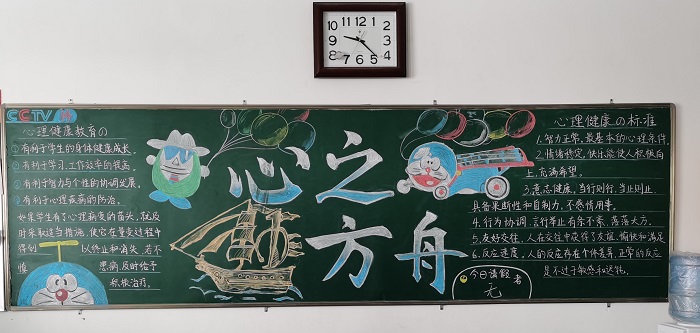 12
1
2
3
4
5
6
7
8
9
10
11
CCTV
心理健康教育の
①有利于学生的身体健康成长
②有利于学习、工作效率的提高。
③有利于智力与个性的协调发展。
④有利于心理疾病的防治。
如果学生有了心理病变的苗头,就及
时采取适当措施,使它在量变过程中
得到 以终止和消失,若不
慎 患病,及时给予
积极治疗。
心之
方舟
心理健康の标准
1.智力正常,最基本的心理条件
2.情绪稳定,快乐能使人积极向
上,充满希望。
3.意志健康,当行则行,当止则止
具备果断性和自制力,不感情用事。
4.行为协调,言行举止有条不紊,落落大方。
5.友好交往,人在交往中获得了友谊、愉快和满足
6.反应适度,人的反应存在个体差异,正常的反应
是不过于敏感和迟钝。
今日请假者
无